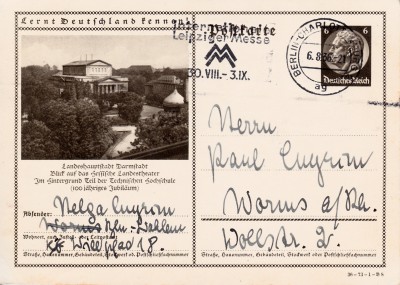 Lernt Deutschland kennen!
Postkarte
Internationale
Leipziger Messe
30. VIII. - 3. IX.
BERLIN-CHARLO
6.8.36
ag
6 6
Deutsches Reich
Landeshauptstadt Darmstadt
Blick auf das Hessische Landestheater
Im Hintergrund Teil der Technischen Hochschule
(100 jähriges Jubiläum)
Absender: Helga
Worms Bln.-Dahlem
Wohnort, auch Zustell- oder Leitpostamt
18.
Straße, Hausnummer, Gebäudeteil, Stockwerk od. Postschließfachnummer
Herrn
Paul
Worms a/Rh.
2.
Straße, Hausnummer, Gebäudeteil, Stockwerk oder Postschließfachnummer